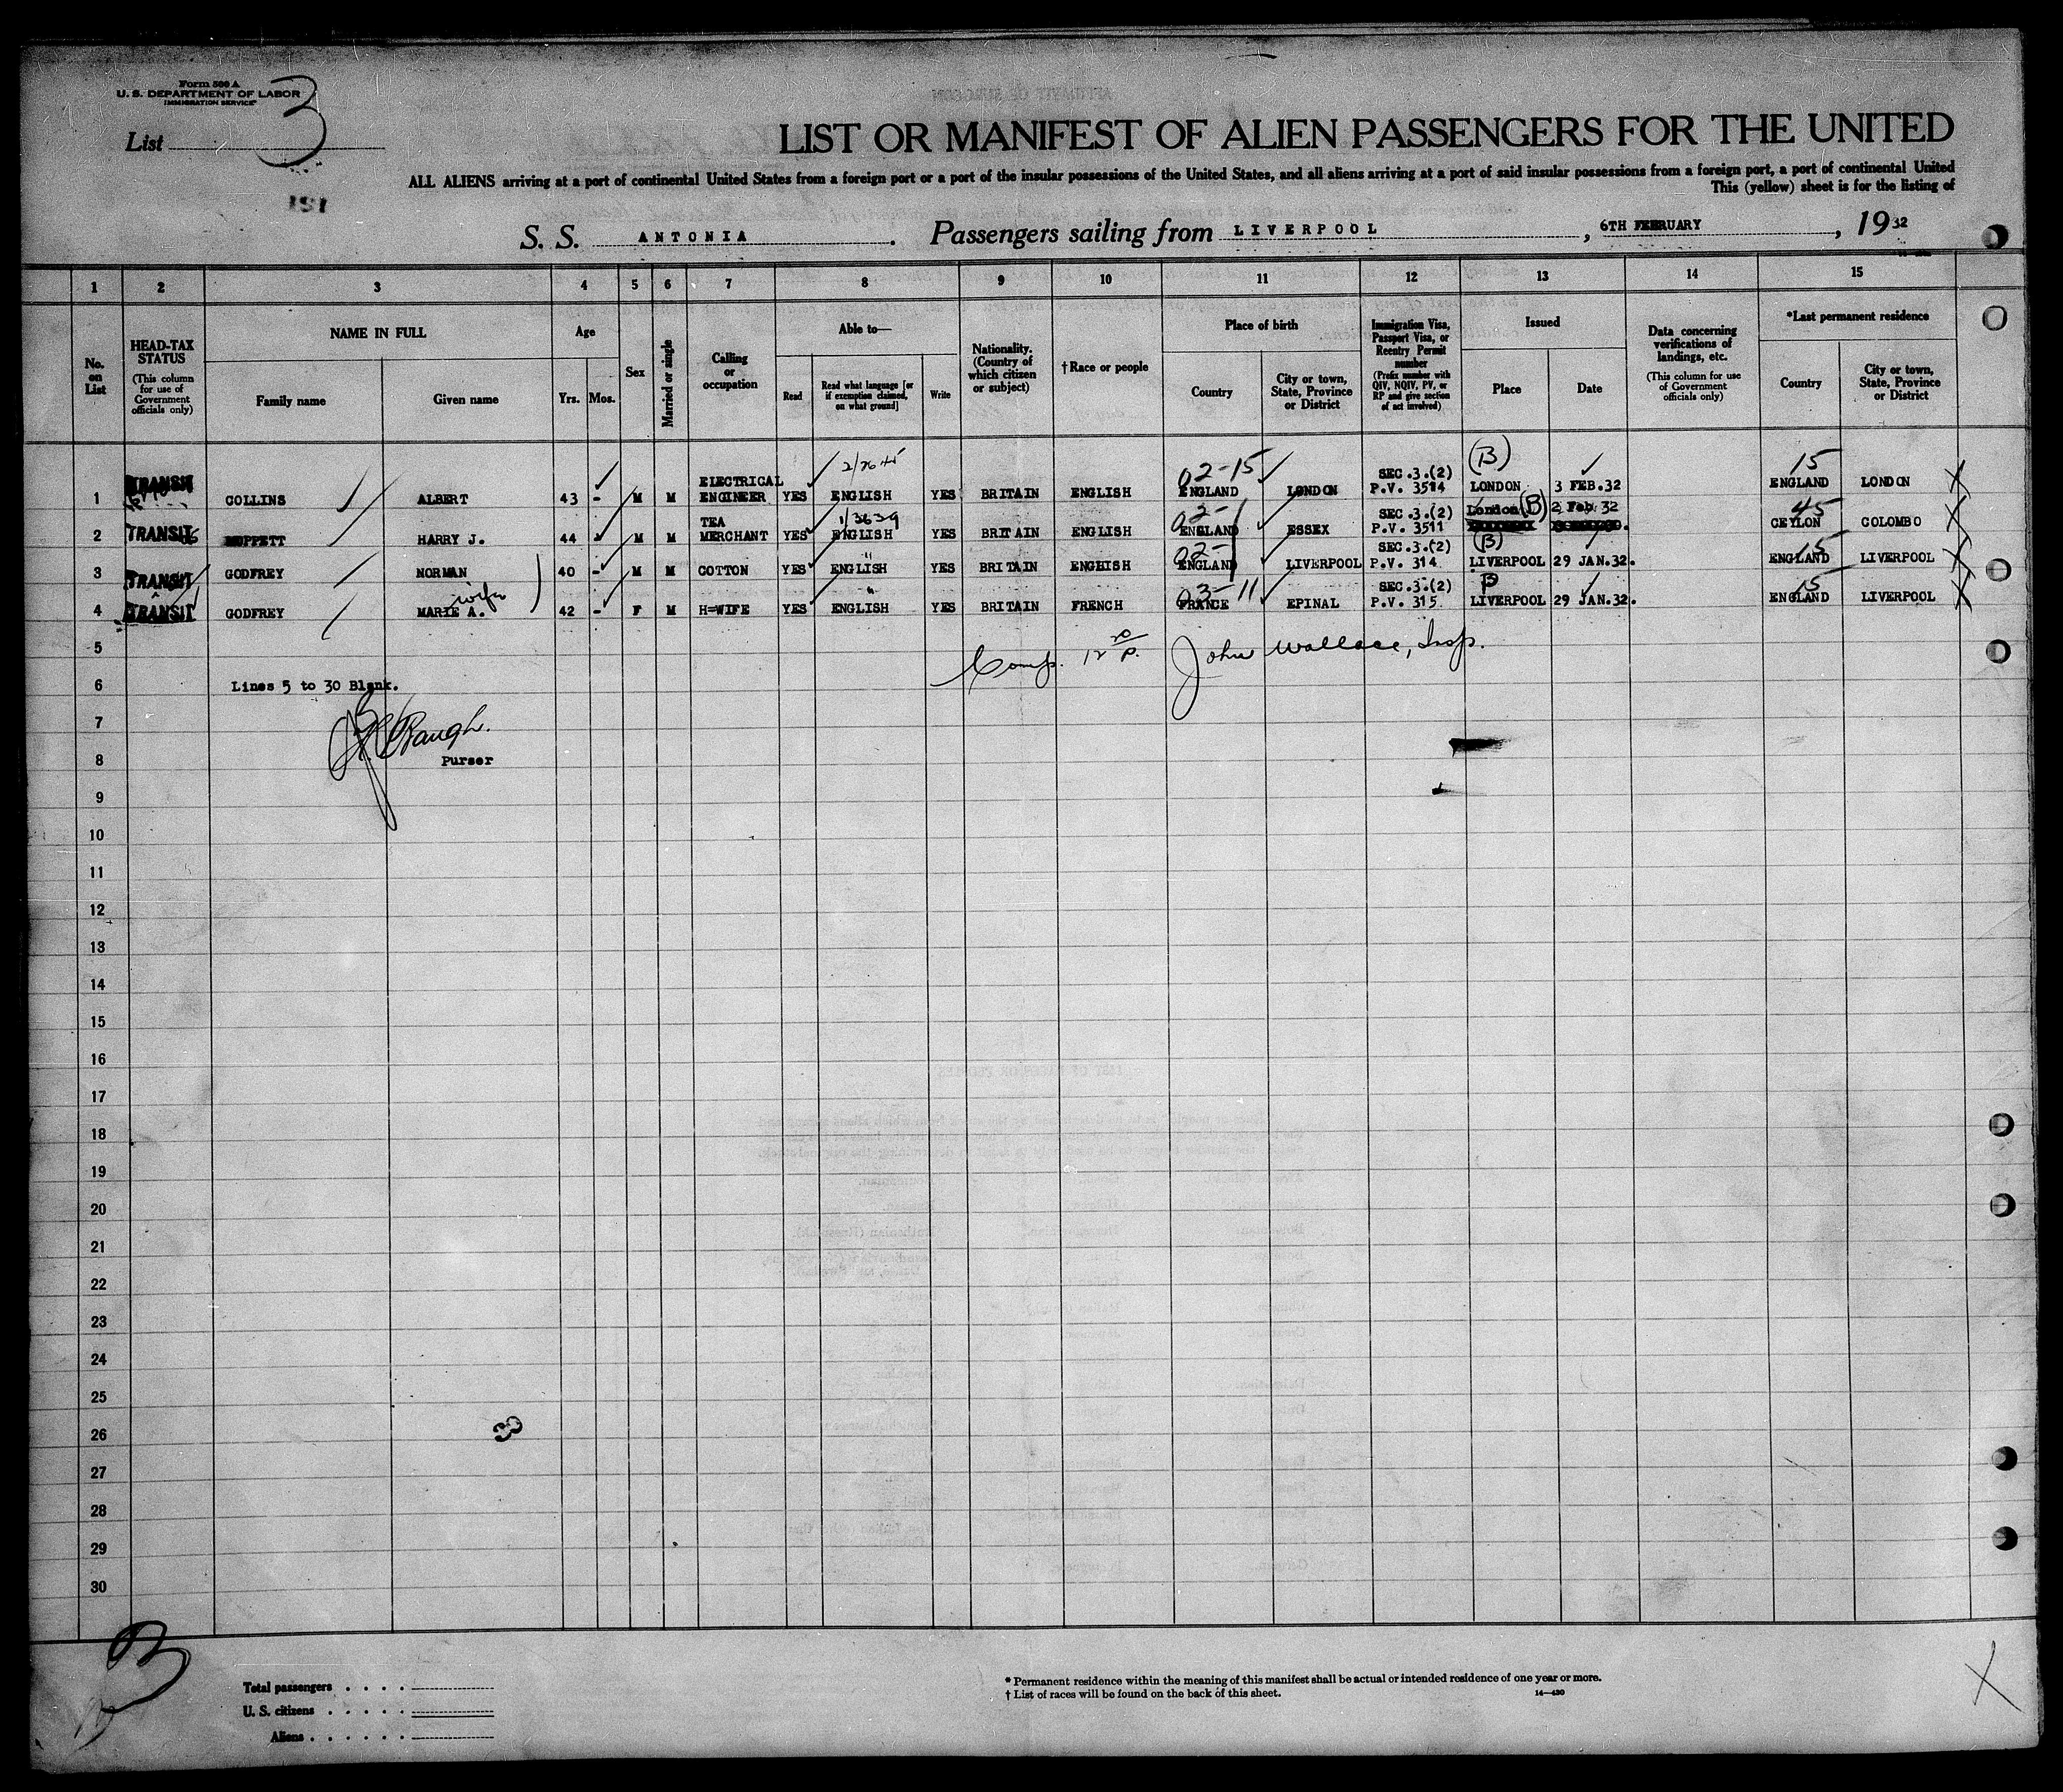 Form 500 A
U. S. DEPARTMENT OF LABOR
IMMIGRATION SERVICE
List 3
LIST OR MANIFEST OF ALIEN PASSENGERS FOR THE UNITED
ALL ALIENS arriving at a port of continental United States from a foreign port or a port of the insular possessions of the United States, and all aliens arriving at a port of said insular possessions from a foreign port, a port of continental United
This (yellow) sheet is for the listing of
S. S. ANTONIA. Passengers sailing from LIVERPOOL, 6TH FEBRUARY, 1932
1 2 3 4 5 6 7 8 9 10 11 12 13 14 15
No. on List
HEAD-TAX STATUS
(This column for use of Government officials only)
NAME IN FULL
Family name
Given name
Age
Yrs. Mos.
Sex
Married or single
Calling or occupation
Able to—
Read
Read what language [or if exemption claimed, on what ground]
Write
Nationality. (Country of which citizen or subject)
†Race or people
Place of birth
Country
City or town, State, Province or District
Immigration Visa, Passport Visa, or Reentry Permit number
(Prefix number with QIV, NQIV, PV, or RP and give section of act involved)
Issued
Place
Date
Data concerning verifications of landings, etc.
(This column for use of Government officials only)
*Last permanent residence
Country
City or town, State, Province or District
02-15 (B) 15
TRANSIT ELECTRICAL SEC.3.(2)
1 COLLINS ALBERT 43 - M M ENGINEER YES ENGLISH YES BRITAIN ENGLISH ENGLAND LONDON P.V. 3514 LONDON 3 FEB.32 ENGLAND LONDON
TEA 1/3639 02- SEC.3.(2) London (B) 2 Feb 32 45
2 TRANSIT MOPPETT HARRY J. 44 M M MERCHANT YES ENGLISH YES BRITAIN ENGLISH ENGLAND ESSEX P.V. 3511 CEYLON COLOMBO
" 02- SEC.3.(2) (B) 15
3 TRANSIT GODFREY NORMAN 40 - M M COTTON YES ENGLISH YES BRITAIN ENGLISH ENGLAND LIVERPOOL P.V. 314 LIVERPOOL 29 JAN.32. ENGLAND LIVERPOOL
wife " 03-11 SEC.3.(2) B 15
4 TRANSIT GODFREY MARIE A. 42 - F M H=WIFE YES ENGLISH YES BRITAIN FRENCH FRANCE EPINAL P.V. 315 LIVERPOOL 29 JAN.32. ENGLAND LIVERPOOL
5 Comp. 12 20 P. John Wallace, Insp.
6 Lines 5 to 30 Blank.
7
8 Purser
9
10
11
12
13
14
15
16
17
18
19
20
21
22
23
24
25
26
27
28
29
30
Total passengers
U. S. citizens
Aliens
* Permanent residence within the meaning of this manifest shall be actual or intended residence of one year or more.
† List of races will be found on the back of this sheet.
14—430